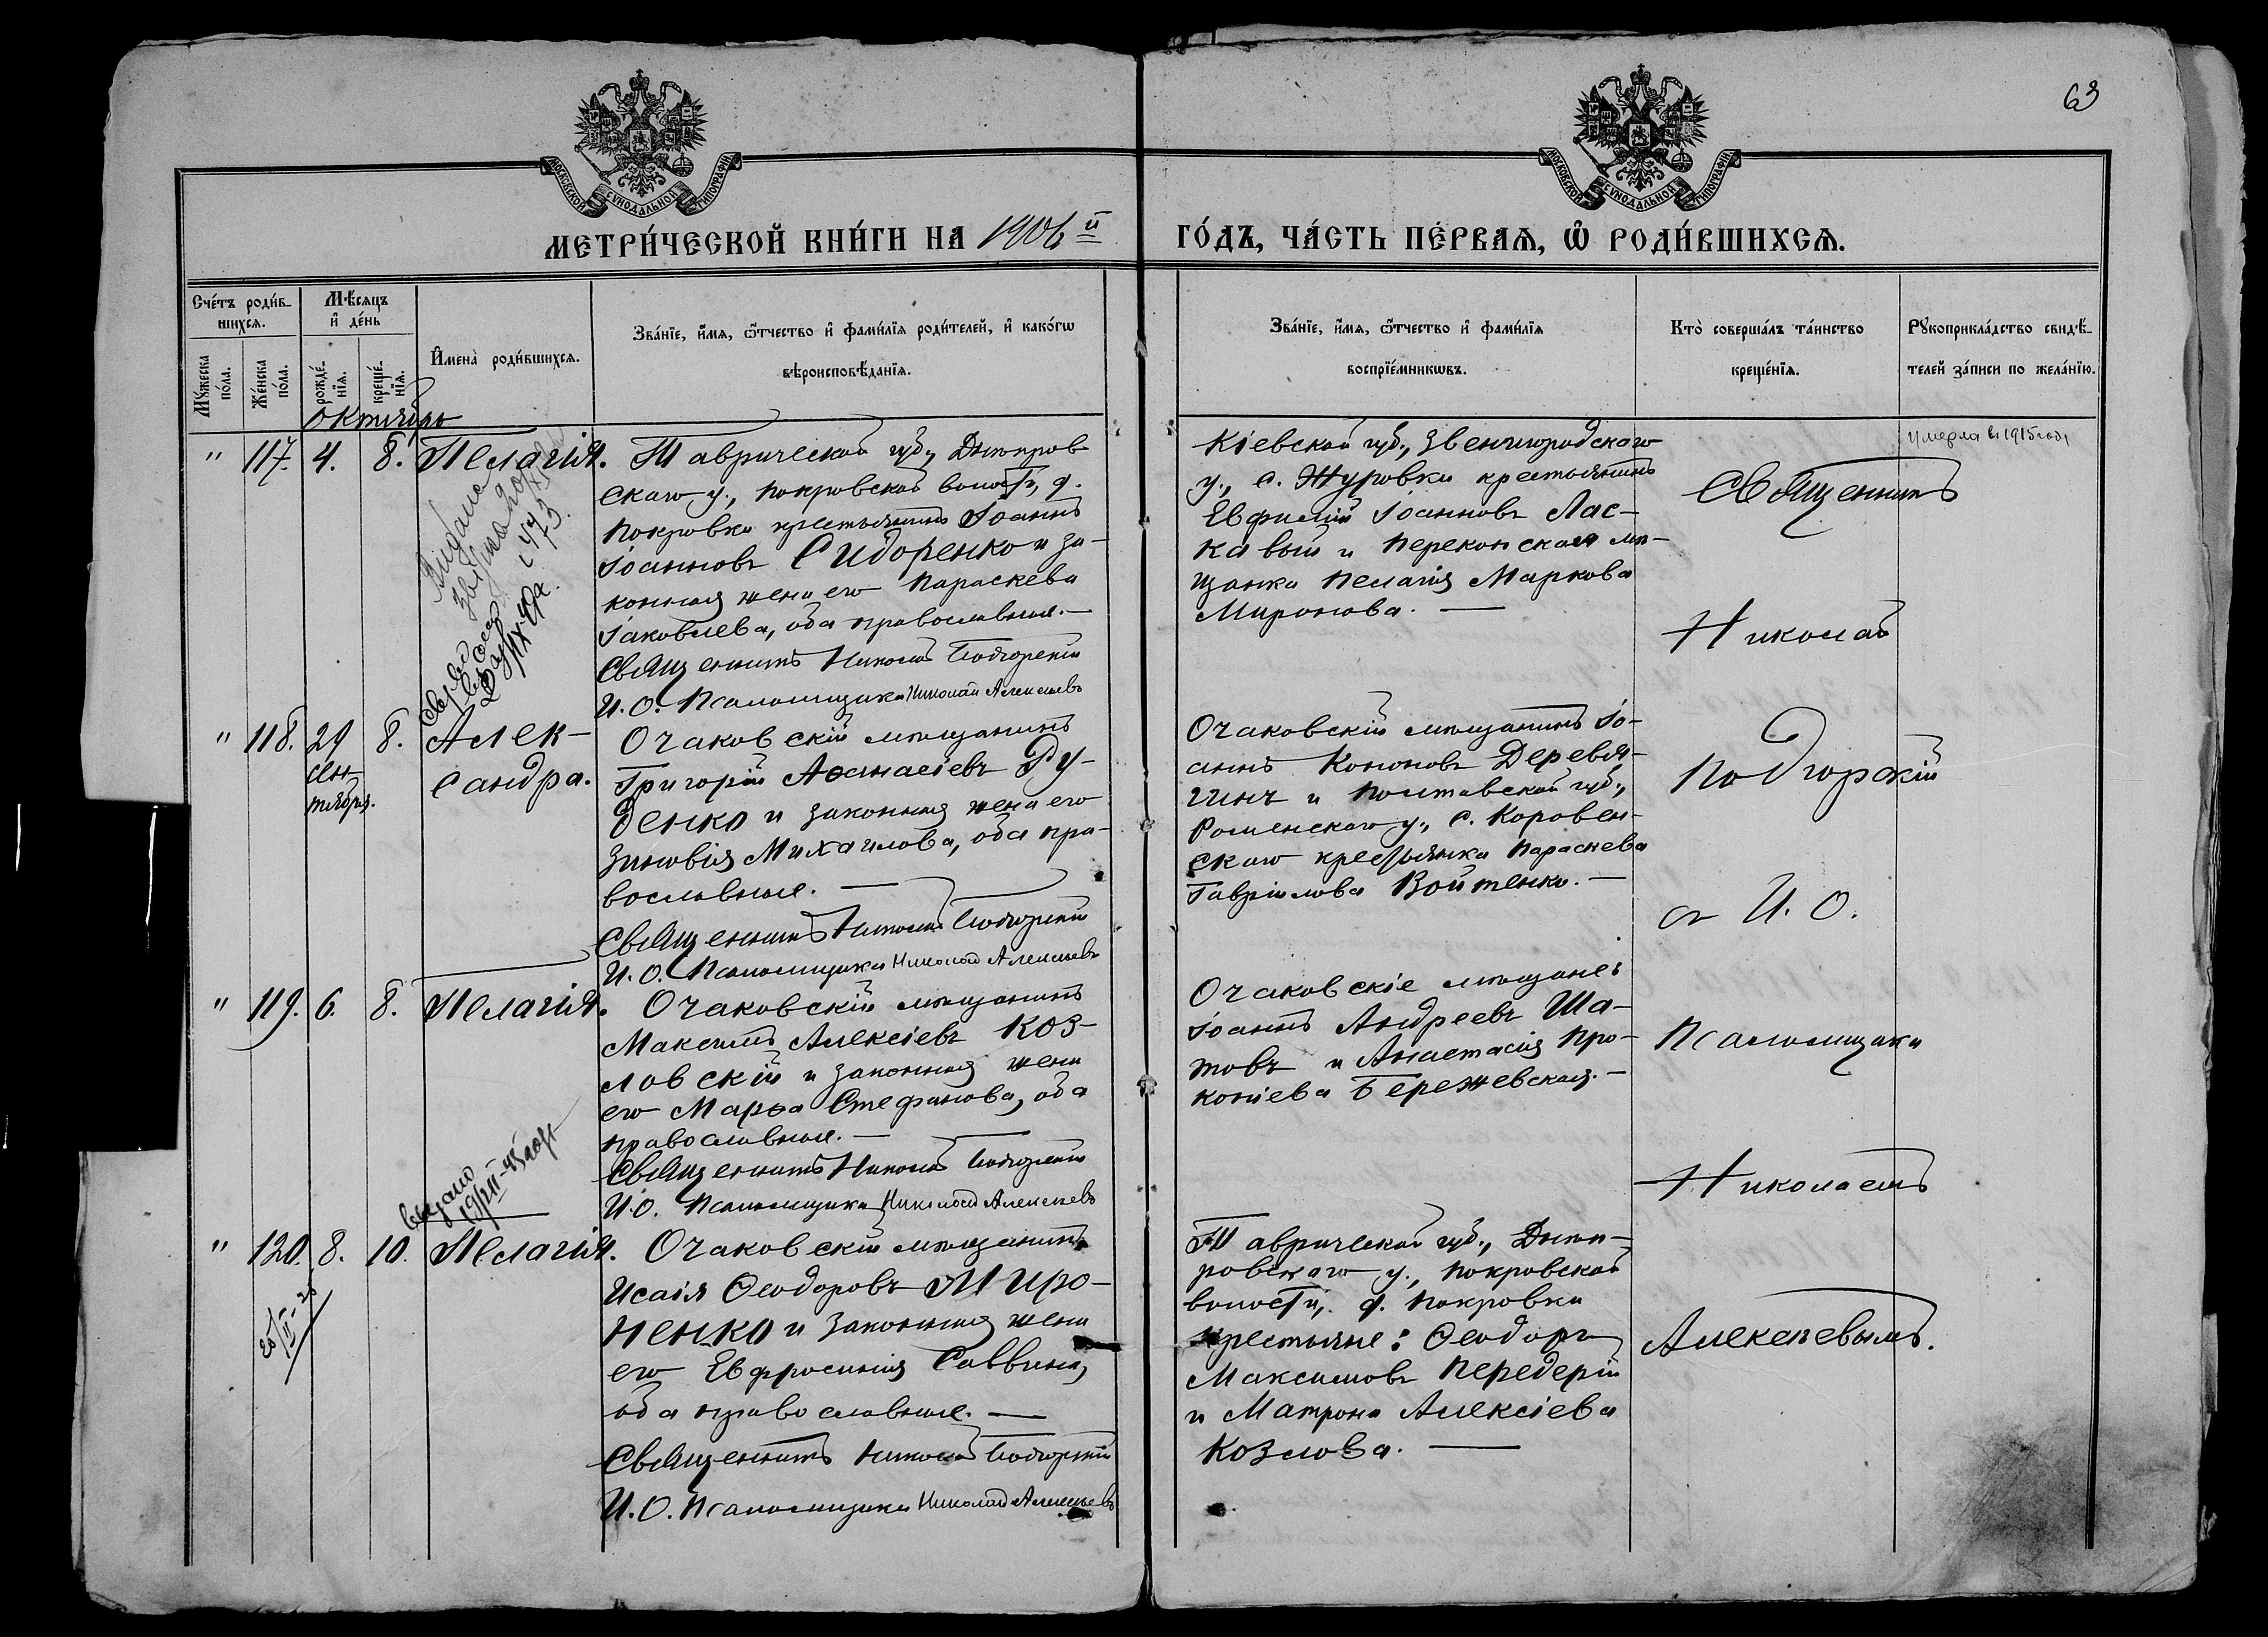 63
МОСКОВСКОЙ СѴНОДАЛЬНОЙ ТИПОГРАФІИ
МОСКОВСКОЙ СѴНОДАЛЬНОЙ ТИПОГРАФІИ
МЕТРИ́ЧЕСКОЙ КНИ́ГИ НА 1906й ГО́ДЪ, ЧА́СТЬ ПЕ́РВАѦ, Ѽ РОДИ́ВШИХСѦ.
Сче́тъ роди́в-
шихсѧ.
Мꙋжеска по́ла.
Же́нска по́ла.
Мѣ́сѧцъ
и҆ де́нь
рожде́-
нїѧ.
креще́-
нїѧ.
И҆мена̀ роди́вшихсѧ.
Зва́нїе, и҆́мѧ, ѻ҆́тчество и҆ фами́лїѧ роди́телей, и҆ како́гѡ
вѣроисповѣ́данїѧ.
Зва́нїе, и҆́мѧ, ѻ҆́тчество и҆ фами́лїѧ
воспрїе́мникѡвъ.
Кто̀ соверша́лъ та́инство
креще́нїѧ.
Рꙋкоприкла́дство свидѣ́-
телей за́писи по жела́нїю.
октябрь
" 117. 4. 8. Пелагія.
Таврической губ., Днѣпров
скаго у., Покровской волости, д.
Покровки крестьянинъ Іоаннъ
Іоанновъ Сидоренко и за-
конная жена его Параскева
Іаковлева, оба православные. —
Священникъ Николай Подгорскій
И. О. Псаломщика Николай Алексѣевъ
Кіевской губ., Звенигородскаго
у., с. Журовки крестьянинъ
Евфимій Іоанновъ Лас-
кавый и Перекопская мѣ-
щанка Пелагія Маркова
Миронова. —
умерла въ 1915 году
" 118. 29 сен-
тября. 8. Алек-
сандра.
Очаковскій мѣщанинъ
Григорій Аѳанасіевъ Ру-
денко и законная жена его
Зиновія Михаилова, оба пра-
вославные. —
Священникъ Николай Подгорскій
И. О. Псаломщика Николай Алексѣевъ
Очаковскій мѣщанинъ Іо-
аннъ Кононовъ Деревя-
гинъ и Полтавской губ.,
Роменскаго у., с. Коровен-
скаго крестьянка Параскева
Гавріилова Войтенко. —
" 119. 6. 8. Пелагія.
Очаковскій мѣщанинъ
Максимъ Алексіевъ Коз-
ловскій и законная жена
его Марѳа Стефанова, оба
православные. —
Священникъ Николай Подгорскій
И. О. Псаломщика Николай Алексѣевъ
Очаковскіе мѣщане:
Іоаннъ Андреевъ Ша-
товъ и Анастасія Про-
копіева Бережевская. —
выдано
" 120. 8. 10. Пелагія.
Очаковскій мѣщанинъ
Исаія Ѳеодоровъ Миро-
ненко и законная жена
его Евфросинія Саввина,
оба православные. —
Священникъ Николай Подгорскій
И. О. Псаломщика Николай Алексѣевъ
Таврической губ., Днѣп-
ровскаго у., Покровской
волости, д. Покровки
крестьяне: Ѳеодоръ
Максимовъ Передерій
и Матрона Алексіева
Козлова. —
Священникъ
Николай
Подгорскій
съ И. О.
Псаломщика
Николаемъ
Алексѣевымъ.